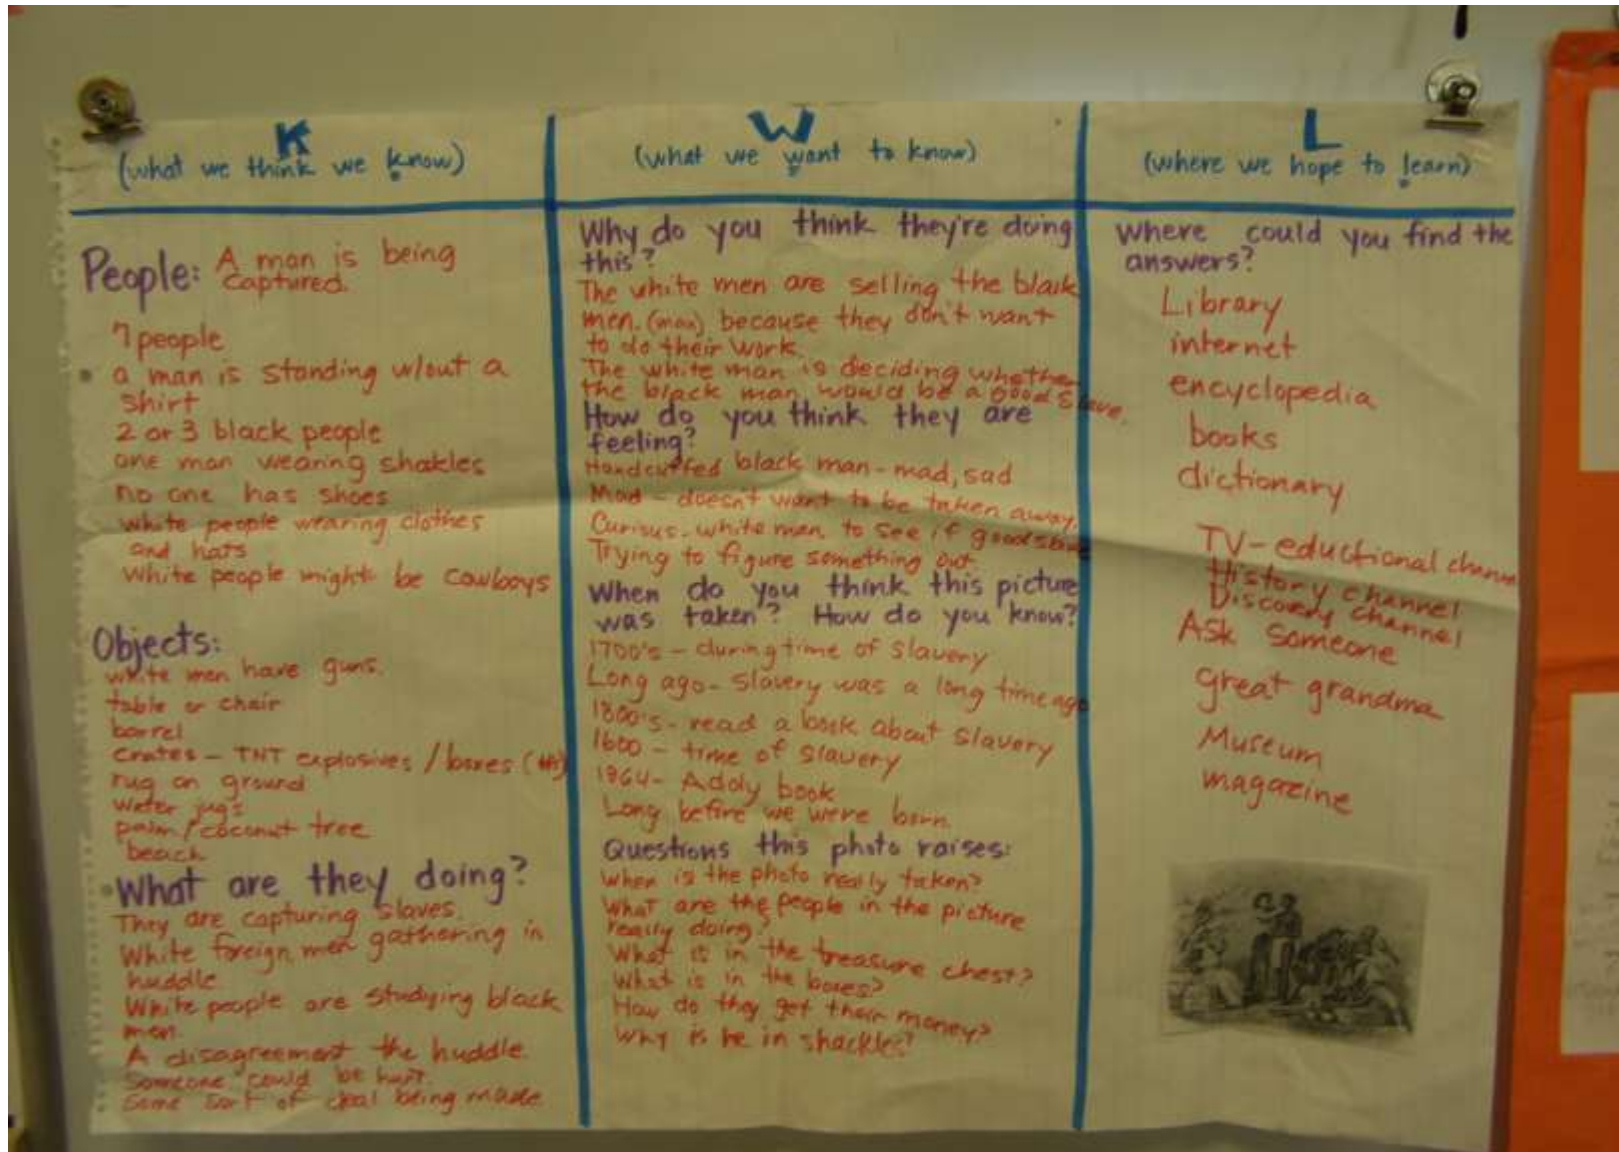 K
(what we think we know)
People: A man is being
captured.
7 people
a man is standing w/out a
shirt
2 or 3 black people
one man wearing shakles
no one has shoes
white people wearing clothes
and hats
white people might be cowboys
Objects:
white men have guns.
table or chair
barrel
crates - TNT explosives / boxes
rug on ground
water jugs
palm/coconut tree
beach
What are they doing?
They are capturing slaves.
White foreign men gathering in
huddle
White people are studying black
men.
A disagreement the huddle.
Someone could be hurt.
Some sort of deal being made
W
(what we want to know)
Why do you think they're doing
this?
The white men are selling the black
men. (man) because they don't want
to do their work.
The white man is deciding whether
the black man would be a good slave.
How do you think they are
feeling?
Handcuffed black man - mad, sad
Mad - doesn't want to be taken away.
Curious - white man to see if good slave
Trying to figure something out
When do you think this picture
was taken? How do you know?
1700's - during time of slavery
Long ago - slavery was a long time ago
1800's - read a book about slavery
1600 - time of slavery
1864 - Addy book
Long before we were born.
Questions this photo raises:
When is the photo really taken?
What are the people in the picture
really doing?
What is in the treasure chest?
What is in the boxes?
How do they get their money?
Why is he in shackles?
L
(where we hope to learn)
Where could you find the
answers?
Library
internet
encyclopedia
books
dictionary
TV - eductional channel
History channel
Discovery channel
Ask someone
great grandma
Museum
magazine